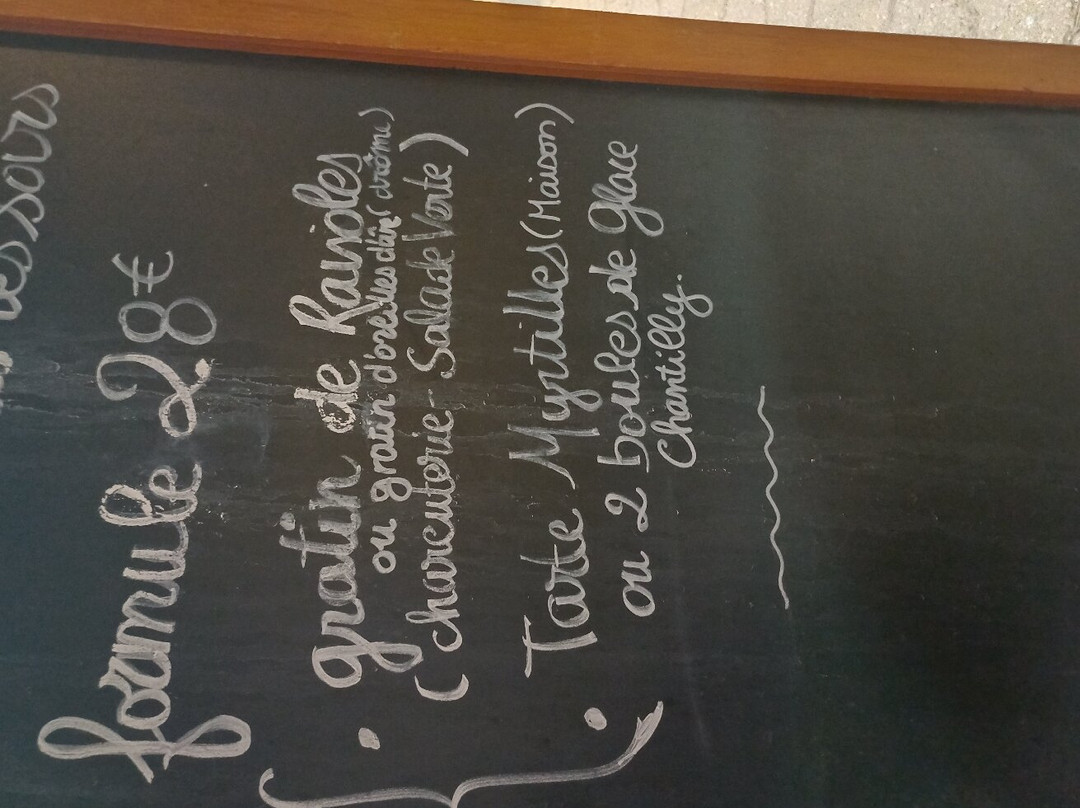 les sours
formule 28 €
• gratin de Ravioles
ou gratin d'oreilles d'âne (drôme)
(charcuterie - Salade Verte)
• Tarte Myrtilles (Maison)
ou 2 boules de glace
chantilly.